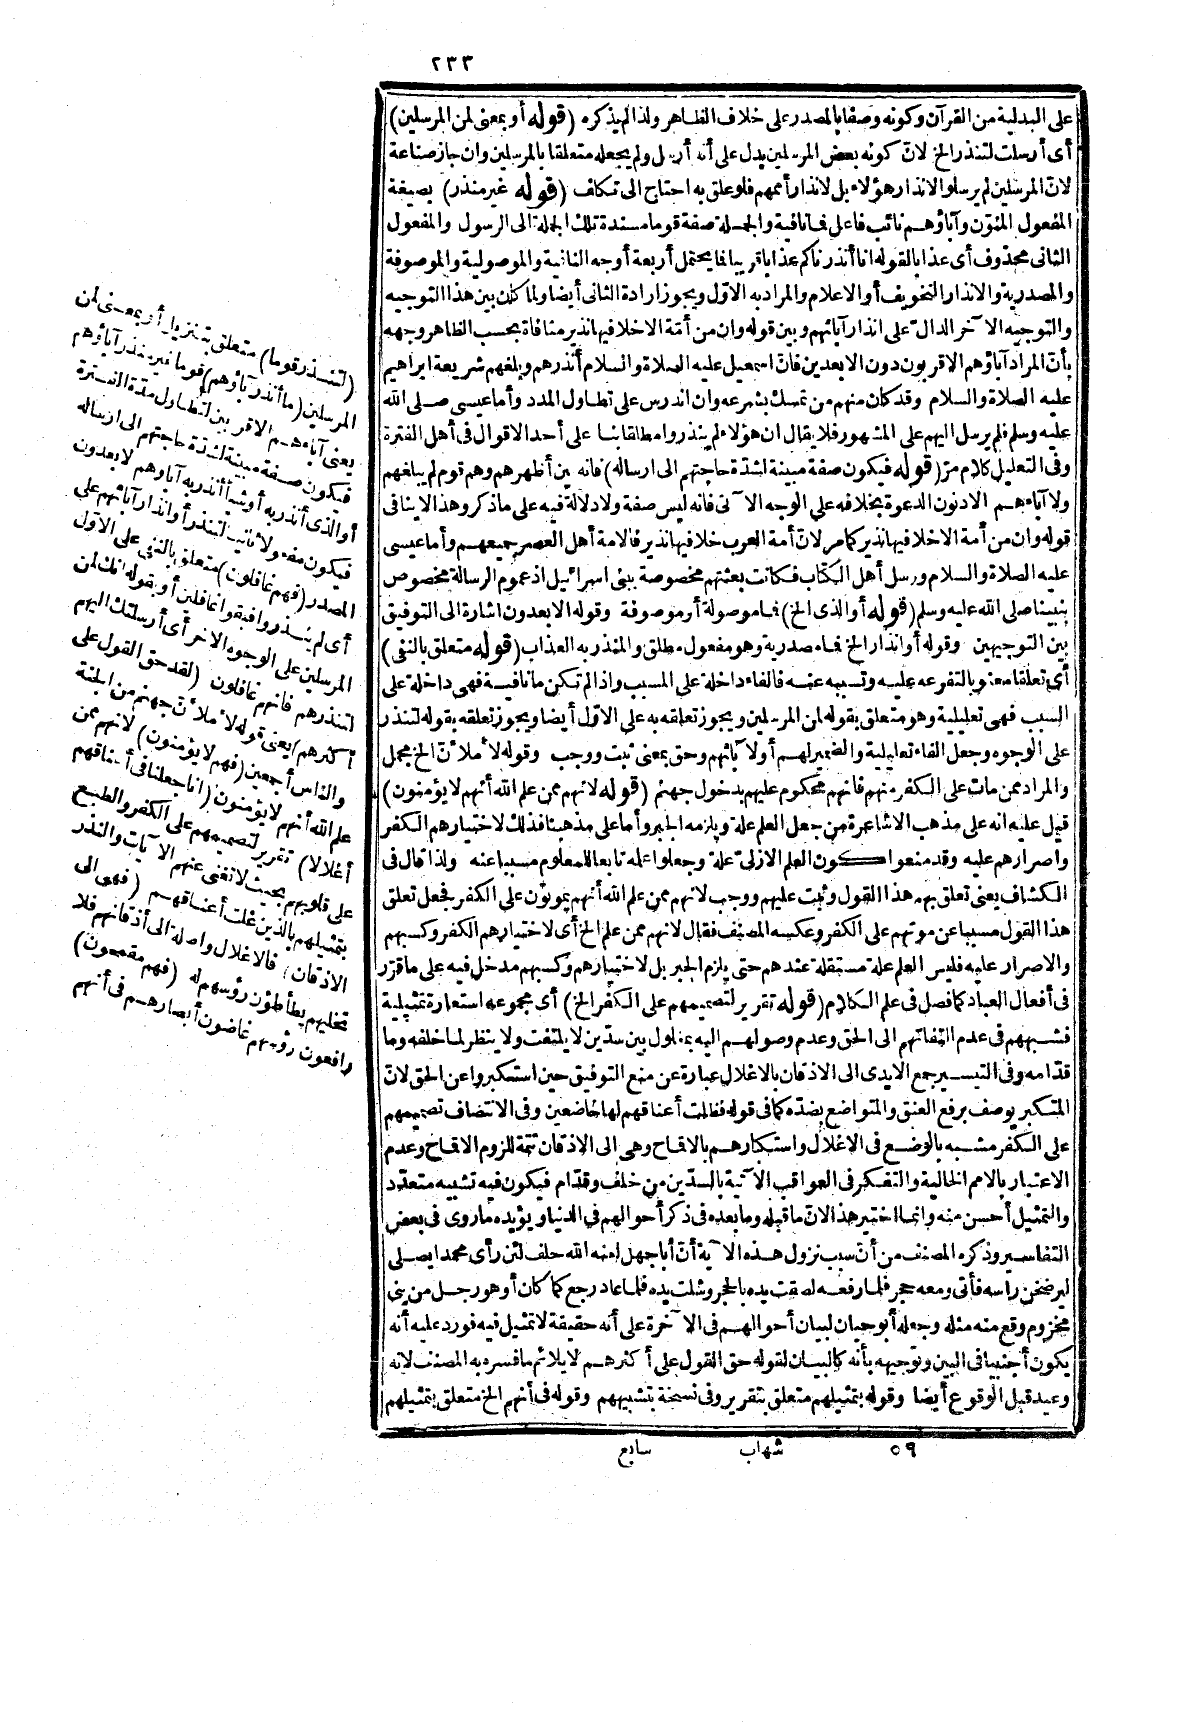 ٢٣٣
على البدلية من القرآن وكونه وصفا بالمصدر على خلاف الظاهر ولذا لم يذكره (قوله أو بمعنى لمن المرسلين)
أى أرسلت لتنذر الخ لانّ كونه بعض المرسلين يدل على أنه أرسل ولم يجعله متعلقا بالمرسلين وان جاز صناعة
لانّ المرسلين لم يرسلوا لانذار هؤلاء بل لانذار أممهم فلو علق به احتاج الى تكلف (قوله غير منذر) بصيغة
المفعول المنوّن وآباؤهم نائب فاعل فما نافية والجملة صفة قوما مسندة تلك الجملة الى الرسول والمفعول
الثانى محذوف أى عذابا لقوله انا أنذرناكم عذابا قريبا فما يحتمل أربعة أوجه النافية والموصولية والموصوفة
والمصدرية والانذار التخويف أو الاعلام والمراد به الاوّل ويجوز ارادة الثانى أيضا ولما كان بين هذا التوجيه
والتوجيه الآخر الدالّ على انذار آبائهم وبين قوله وان من أمّة الاخلا فيها نذير منافاة بحسب الظاهر وجهه
بأنّ المراد آباؤهم الاقربون دون الابعدين فانّ اسمعيل عليه الصلاة والسلام أنذرهم وبلغهم شريعة ابراهيم
عليه الصلاة والسلام وقد كان منهم من تمسك بشرعه وان اندرس على تطاول المدد وأما عيسى صلى الله
عليه وسلم فلم يرسل اليهم على المشهور فلا يقال ان هؤلاء لم ينذروا مطلقا بنا على أحد الاقوال فى أهل الفترة
وفى التعليل كلام مرّ (قوله فيكون صفة مبينة لشدّة حاجتهم الى ارساله) فانه بين أظهرهم وهم قوم لم يبلغهم
ولا آباءهم الادنون الدعوة بخلافه على الوجه الآتى فانه ليس صفة ولا دلالة فيه على ما ذكر وهذا لا ينافى
قوله وان من أمة الاخلا فيها نذير كما مر لانّ أمة العرب خلا فيها نذير فالامة أهل العصر جميعهم وأما عيسى
عليه الصلاة والسلام ورسل أهل الكتاب فكانت بعثتهم مخصوصة ببنى اسرائيل اذ عموم الرسالة مخصوص
بنبينا صلى الله عليه وسلم (قوله أو الذى الخ) فما موصولة أو موصوفة وقوله الابعدون اشارة الى التوفيق
بين التوجيهين وقوله أو انذار الخ فما مصدرية وهو مفعول مطلق والمنذر به العذاب (قوله متعلق بالنفى)
أى تعلقا معنويا لتفرعه عليه وتسببه عنه فالفاء داخلة على المسبب واذا لم تكن ما نافية فهى داخلة على
السبب فهى تعليلية وهو متعلق بقوله لمن المرسلين ويجوز تعلقه به على الاوّل أيضا ويجوز تعلقه بقوله لتنذر
على الوجوه وجعل الفاء تعليلية والضمير لهم أو لآبائهم وحق بمعنى ثبت ووجب وقوله لأملأنّ الخ مجمل
والمراد ممن مات على الكفر منهم فانهم محكوم عليهم بدخول جهنم (قوله لانهم ممن علم الله أنهم لا يؤمنون)
قيل عليه انه على مذهب الاشاعرة من جعل العلم علة ويلزمه الجبر وأما على مذهبنا فذلك لاختيارهم الكفر
واصرارهم عليه وقد منعوا كون العلم الازلىّ علة وجعلوا علمه تابعا للمعلوم مسببا عنه ولذا قال فى
الكشاف يعنى تعلق بهم هذا القول وثبت عليهم ووجب لانهم ممن علم الله أنهم يموتون على الكفر فجعل تعلق
هذا القول مسببا عن موتهم على الكفر وعكسه المصنف فقال لانهم ممن علم الخ أى لاختيارهم الكفر وكسبهم
والاصرار عليه فليس العلم علة مستقلة عندهم حتى يلزم الجبر بل لاختيارهم وكسبهم مدخل فيه على ما قرّر
فى أفعال العباد كما فصل فى علم الكلام (قوله تقرير لتصميمهم على الكفر الخ) أى مجموعه استعارة تمثيلية
فشبههم فى عدم التفاتهم الى الحق وعدم وصولهم اليه بمغلول بين سدّين لا يلتفت ولا ينظر لما خلفه وما
قدّامه وفى التيسير جمع الايدى الى الاذقان بالاغلال عبارة عن منع التوفيق حين استكبروا عن الحق لانّ
المتكبر يوصف برفع العنق والمتواضع بضدّه كما فى قوله فظلت أعناقهم لها خاضعين وفى الانتصاف تصميمهم
على الكفر مشبه بالوضع فى الاغلال واستكبارهم بالاقماح وهى الى الاذقان تتمة للزوم الاقماح وعدم
الاعتبار بالامم الخالية والتفكر فى العواقب الآتية بالسدّين من خلف وقدّام فيكون فيه تشبيه متعدّد
والتمثيل أحسن منه وانما اختير هذا لانّ ما قبله وما بعده فى ذكر أحوالهم فى الدنيا ويؤيده ما روى فى بعض
التفاسير وذكره المصنف من أنّ سبب نزول هذه الآية أنّ أبا جهل لعنه الله حلف لئن رأى محمدا يصلى
ليرضخن رأسه فأتى ومعه حجر فلما رفعه لصقت يده بالحجر وشلت يده فلما عاد رجع كما كان أو هو رجل من بنى
مخزوم وقع منه مثله وجعله أبو حيان لبيان أحوالهم فى الآخرة على أنه حقيقة لا تمثيل فيه فورد عليه أنه
يكون أجنبيا فى البين وتوجيهه بأنه كالبيان لقوله حق القول على أكثرهم لا يلائم ما فسره به المصنف لانه
وعيد قبل الوقوع أيضا وقوله بتمثيلهم متعلق بتقرير وفى نسخة بتشبيههم وقوله فى أنهم الخ متعلق بتمثيلهم
(لتنذر قوما) متعلق بتنزيل أو بمعنى لمن
المرسلين (ما أنذر آباؤهم) قوما غير منذر آباؤهم
يعنى آباءهم الاقربين لتطاول مدة الفترة
فيكون صفة مبينة لشدّة حاجتهم الى ارساله
أو الذى أنذر به أو شيأ أنذر به آباؤهم لابعدون
فيكون مفعولا ثانيا لتنذر أو انذار آبائهم على
المصدر (فهم غافلون) متعلق بالنفى على الاوّل
أى لم ينذروا فبقوا غافلين أو بقوله انك لمن
المرسلين على الوجوه الاخر أى أرسلتك اليهم
لتنذرهم فانهم غافلون (لقد حق القول على
أكثرهم) يعنى قوله لأملأنّ جهنم من الجنة
والناس أجمعين (فهم لا يؤمنون) لانهم ممن
علم الله أنهم لا يؤمنون (انا جعلنا فى أعناقهم
أغلالا) تقرير لتصميمهم على الكفر والطبع
على قلوبهم بحيث لا تغنى عنهم الآيات والنذر
بتمثيلهم بالذين غلت أعناقهم (فهى الى
الاذقان) فالاغلال واصلة الى أذقانهم فلا
تخليهم يطأطؤن رؤسهم له (فهم مقمحون)
رافعون رؤسهم غاضون أبصارهم فى أنهم
٥٩ شهاب سابع